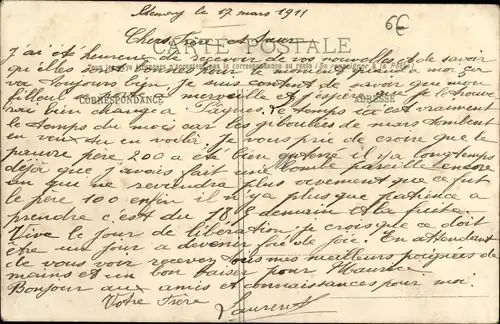 Stenay le 17 mars 1911
6€
CARTE POSTALE
Chers frère et sœur
J'ai été heureux de recevoir de vos nouvelles et de savoir
qu'elles sont bonnes pour le moment quand à moi ça
va toujours bien. Je suis content de savoir que mon
filleul marche à merveille et j'espère que je le trouve
CORRESPONDANCE
ADRESSE
rai bien changé à Pâques. Le temps ici est vraiment
le temps du mois car les giboulées de mars tombent
en veux tu en voilà. Je vous prie de croire que le
pauvre père 200 a été bien il y a longtemps
déjà que j'avais fait une bombe pareille encore
un que ne reviendra plus vivement que ce fut
le père 100 enfin il n'y a plus que patience à
prendre c'est du 18 demain et la fuite.
Vive le jour de libération je crois que ce doit
être un jour à devenir fou de joie. En attendant
de vous voir recevez tous mes meilleurs poignées de
mains et un bon baiser pour Maurice.
Bonjour aux amis et connaissances pour moi.
Votre frère
Laurent